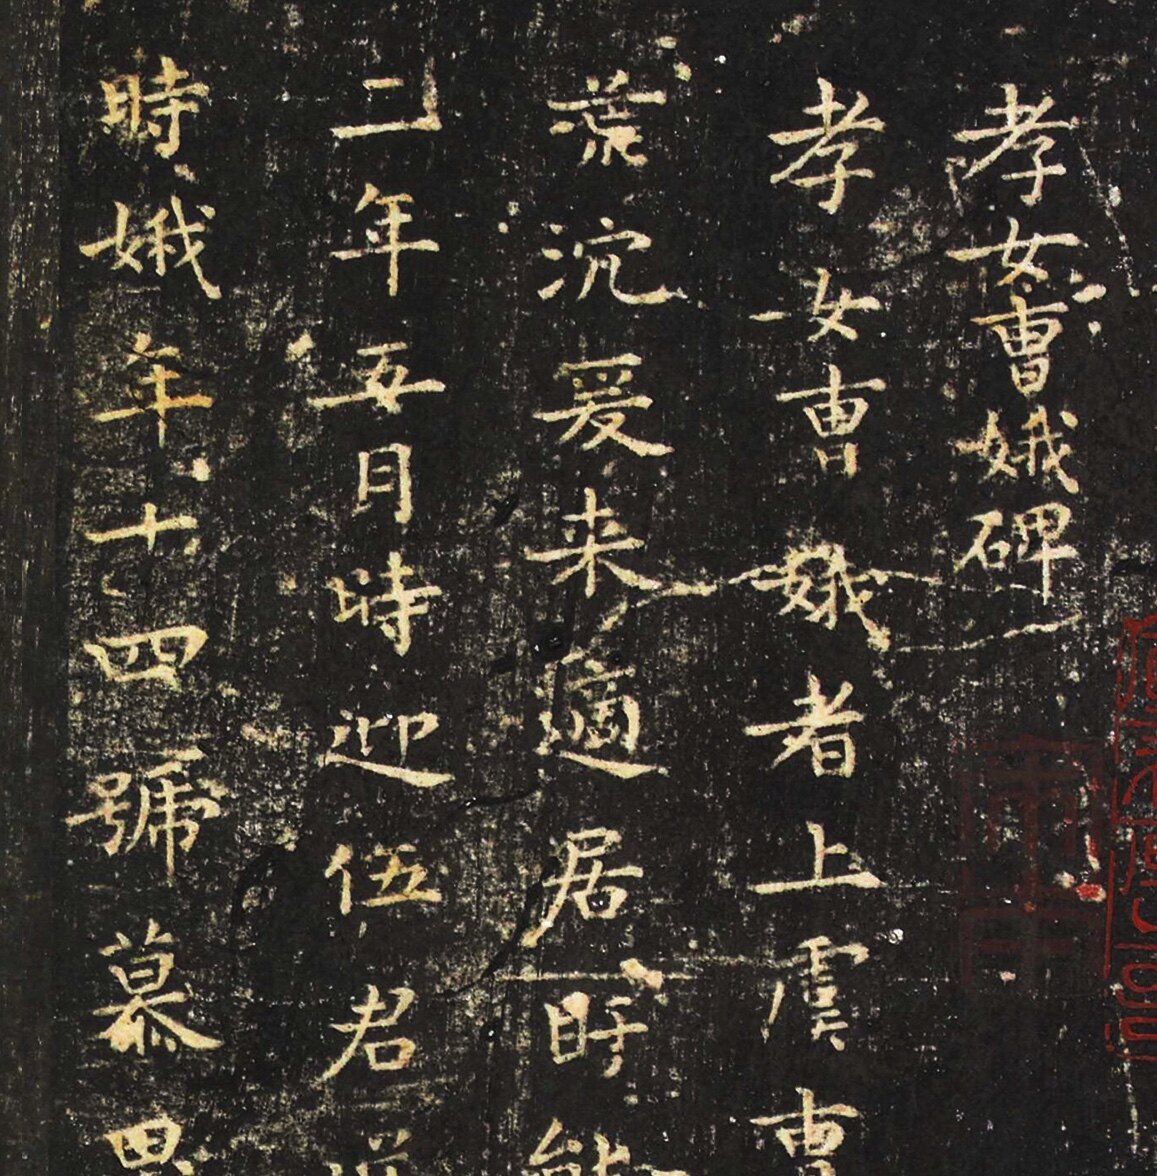 孝女曹娥碑
孝女曹娥者上虞曹
荒沉爰来適居盱能
二年五月時迎伍君
時娥年十四號慕思